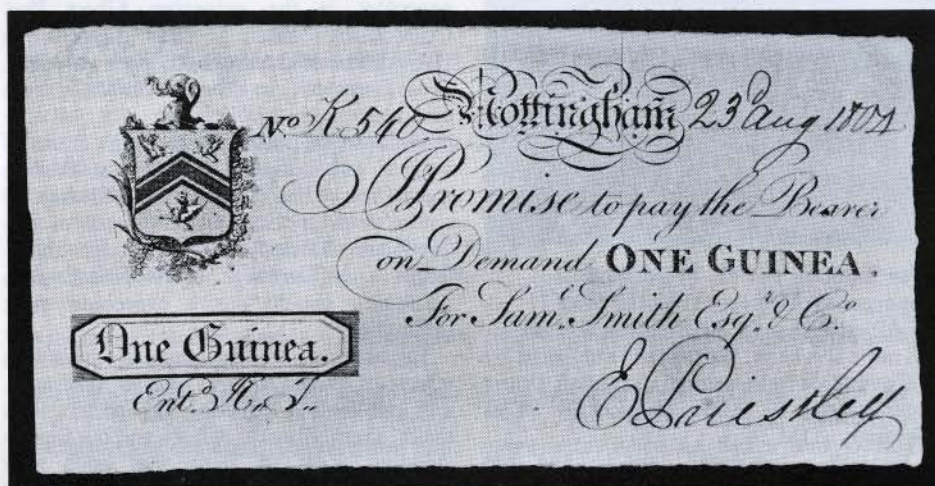 No K 540 Nottingham 23d Aug 1804
I Promise to pay the Bearer
on Demand ONE GUINEA.
For Saml. Smith Esqr. & Co.
One Guinea.
Entd.
E Priestley